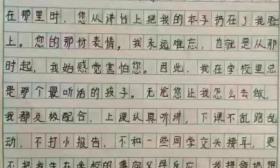 在那里时，您从讲台上把我的本子扔在了我脸
上。您的那份表情，我永远难忘，也就是从那
时起，我始感觉害怕您。因此，我在学校里总
是那个最听话的孩子。无论您让我怎么去做，
我都及极配合，上课认真听讲，下课不乱跑乱
动，不打小报告，不和一些同学交头接耳，更